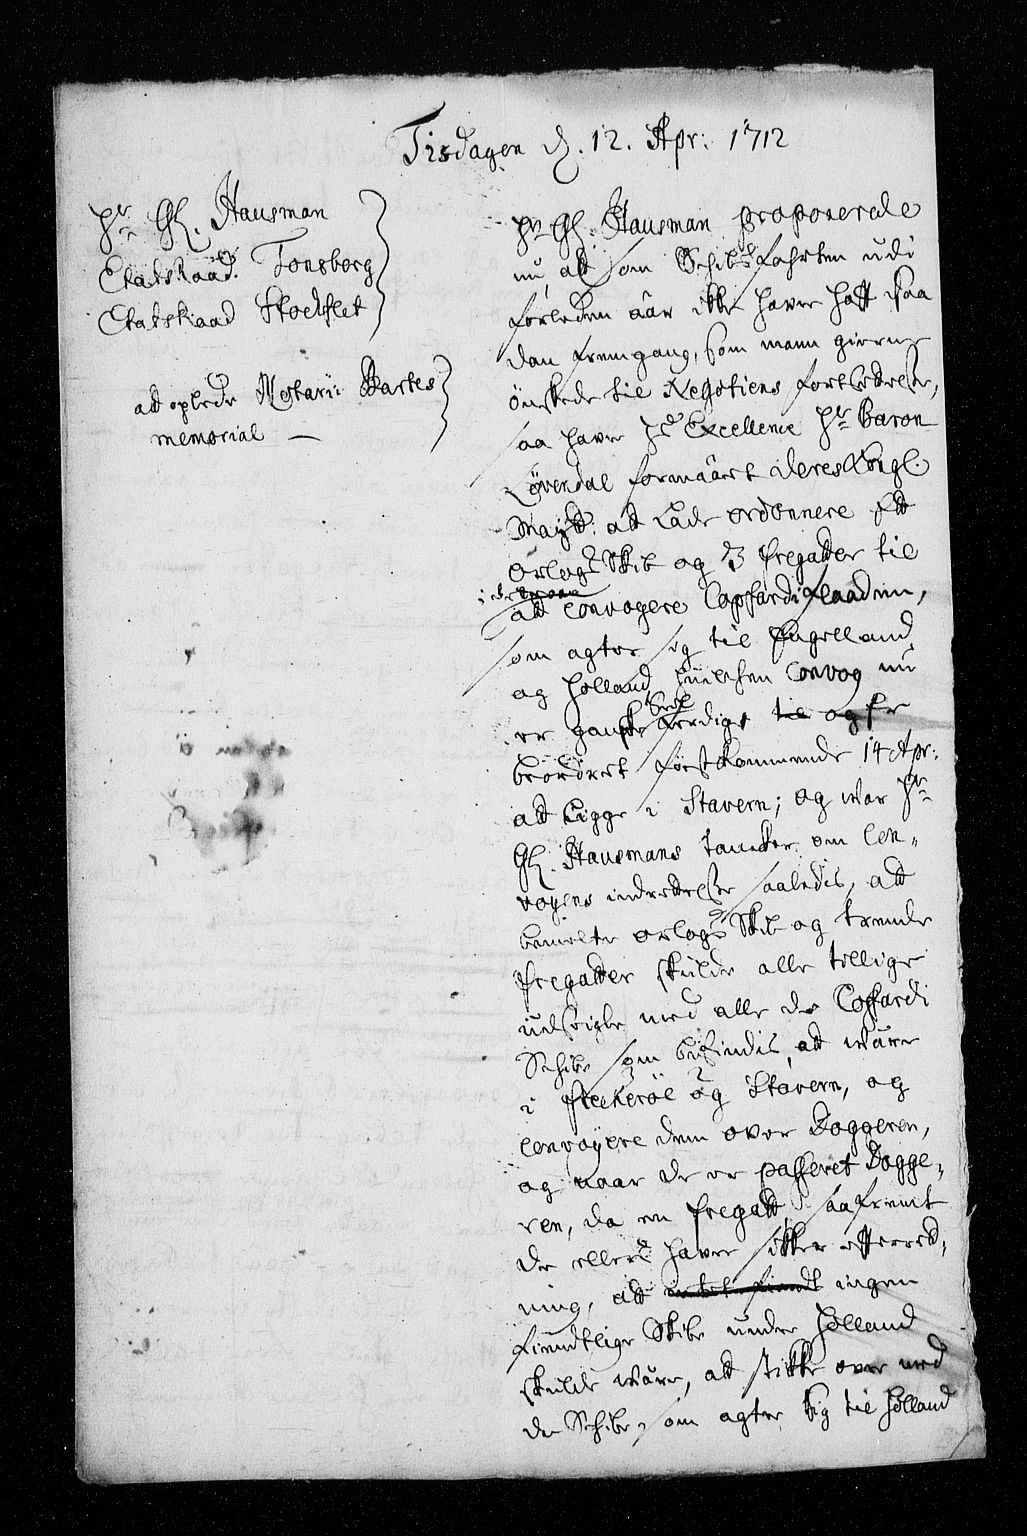 Tisdagen d. 12. Apr: 1712
Hr Gl. Hausman
Etatsraad Tonsberg
Etatsraad Stockflet
att oplede Notarii Bartes
memorial —
Hr Gl. Hausman proponerede
nu, att som Schibsfahrten udi
forleden aar icke haver hatt saa
dan fremgang, som mann gierne
önskede til Negotiens fortsettelse,
saa haver Hds Excellence Hr Baron
Løvendal formaaet deres Kongl.
Mayst: att lade ordonnere ett
Orlogs Skib og 3 fregatter til
att convoyere Copfardi flaaden,
som agter sig til Engelland
og Holland, huilchen Convoy nu
er ganske ferdig til og er
beordret förstkommende 14 Apr:
att ligge i Stavern; og war Hr
Gl. Hausmans tancker om Con-
voyens indrettelse saaledis, att
bemelte orlogs Skib og trende
fregatter skulde alle tillige
udseigle med alle de Copfardi
Schibe som befindis att wære
i Fleckeröe og Stavern, og
convoyere dem over Doggeren,
og naar de er passeret Dogge-
ren, da en fregatt saafremt
de ellers haver sikker efterret-
ning, att intet fiendt ingen
fiendtlige Skibe under Holland
skulde wære, att stikke over med
de Schibe, som agter sig til Holland